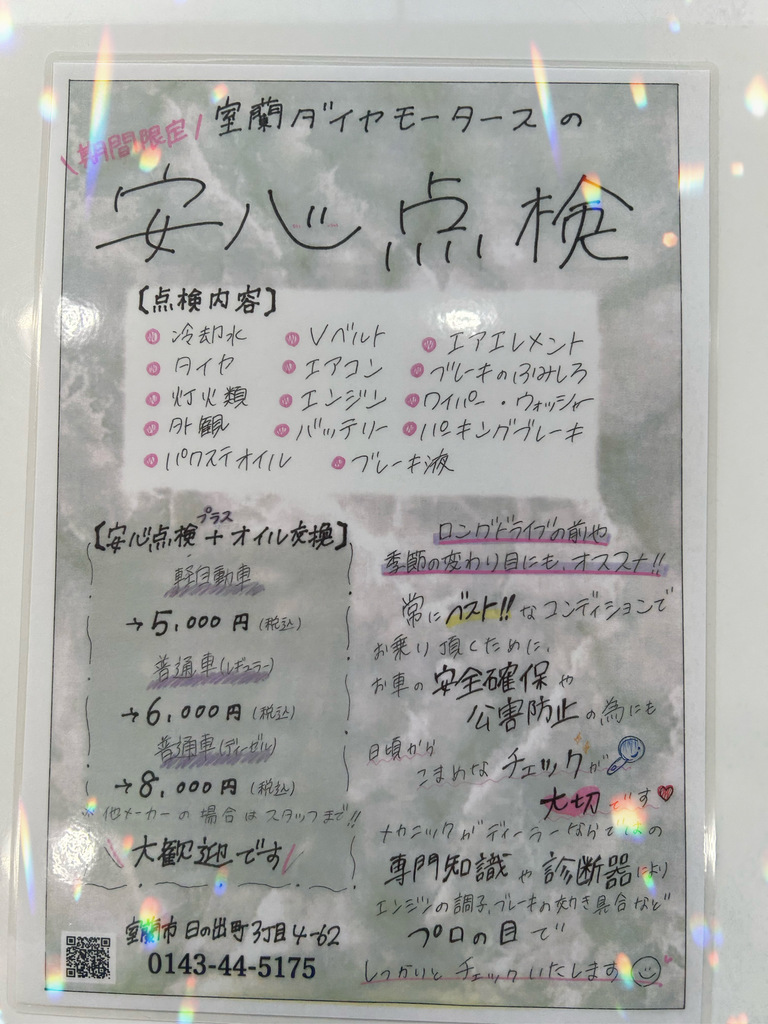 室蘭ダイヤモータースの
\期間限定/
安心点検
【点検内容】
冷却水 Vベルト エアエレメント
タイヤ エアコン ブレーキのふみしろ
灯火類 エンジン ワイパー・ウォッシャー
外観 バッテリー パーキングブレーキ
パワステオイル ブレーキ液
プラス
【安心点検+オイル交換】
軽自動車
→5,000円(税込)
普通車(レギュラー)
→6,000円(税込)
普通車(ディーゼル)
→8,000円(税込)
※他メーカーの場合はスタッフまで!!
\大歓迎です/
ロングドライブの前や
季節の変わり目にも、オススメ!!
常にベスト!!なコンディションで
お乗り頂くために、
お車の安全確保や
公害防止の為にも
日頃から
こまめなチェックが
大切です
メカニックがディーラーならではの
専門知識や診断器により
エンジンの調子、ブレーキの効き具合など
プロの目で
しっかりとチェックいたします
室蘭市日の出町3丁目4-62
0143-44-5175